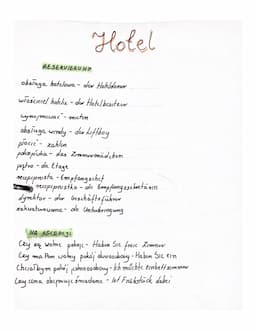 Hotel
RESERVIERUNG
obsługa hotelowa - der Hoteldiener
właściciel hotelu - der Hotelbesitzer
wynajmować - mieten
obsługa windy - der Liftboy
płacić - zahlen
pokojówka - das Zimmermädchen
piętro - die Etage
recepcjonista - Empfangschef
recepcjonistka - die Empfangssekretärin
dyrektor - der Geschäftsführer
zakwaterowanie - die Unterbringung
NA RECEPCJI
Czy są wolne pokoje - Haben Sie freie Zimmer
Czy ma Pan wolny pokój dwuosobowy - Haben Sie ein
Chciałbym pokój jednoosobowy - Ich möchte Einbettzimmer
Czy cena obejmuje śniadanie - Ist Frühstück dabei